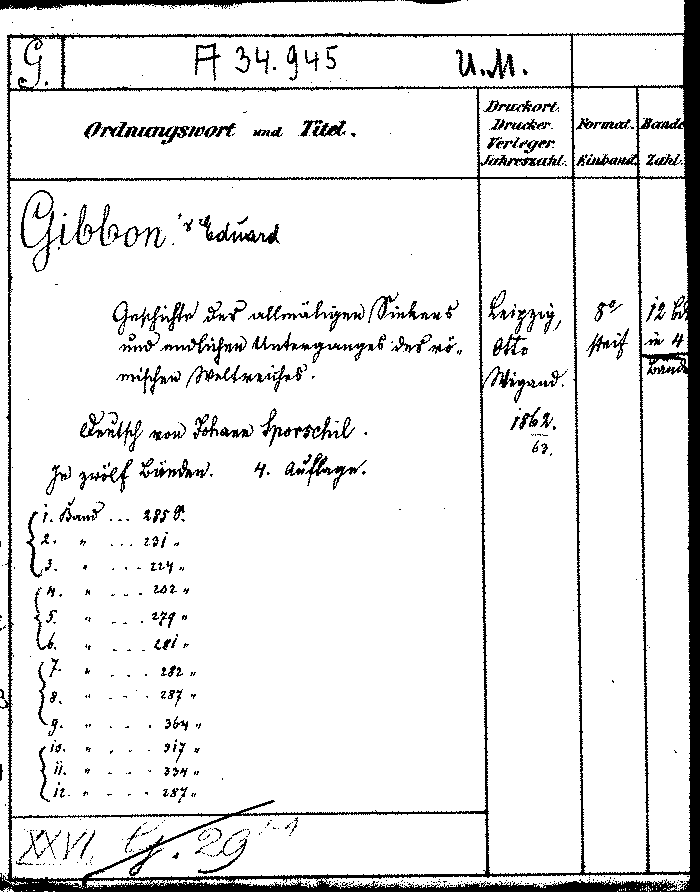 G.
A 34.945
U.M.
Ordnungswort und Titel.
Druckort.
Drucker.
Verleger.
Jahreszahl.
Format.
Einband.
Bande
Zahl.
Gibbon's Eduard
Geschichte des allmäligen Sinkens
und endlichen Unterganges des rö-
mischen Weltreiches.
Deutsch von Johann Sporschil.
In zwölf Bänden. 4. Auflage.
Leipzig,
Otto
Wigand.
1862.
63.
8°
steif
12 Bd
in 4
Bande
1. Band ... 285 S.
2. " ... 231 "
3. " .... 224 "
4. " .... 202 "
5. " .... 279 "
6. " .... 281 "
7. " .... 282 "
8. " .... 287 "
9. " .... 364 "
10. " .... 317 "
11. " .... 334 "
12. " .... 287 "
XXVI. G. 29 1-4